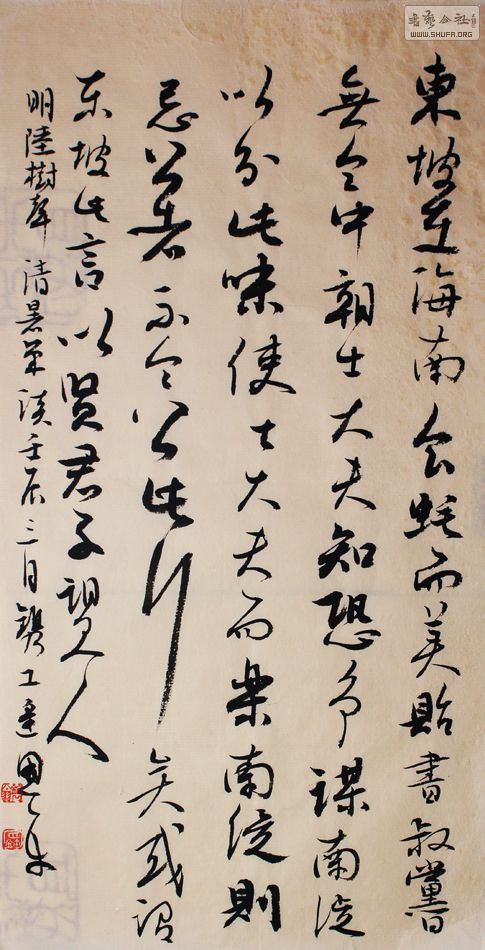 書藝公社
WWW.SHUFA.ORG
東坡在海南食蚝而美貽書叔黨曰
無令中朝士大夫知恐争謀南徙
以分此味使士大夫而樂南徙則
忌公者不令公此行矣或謂
东坡此言以贤君子望人
明陸樹聲清暑筆談壬辰三月